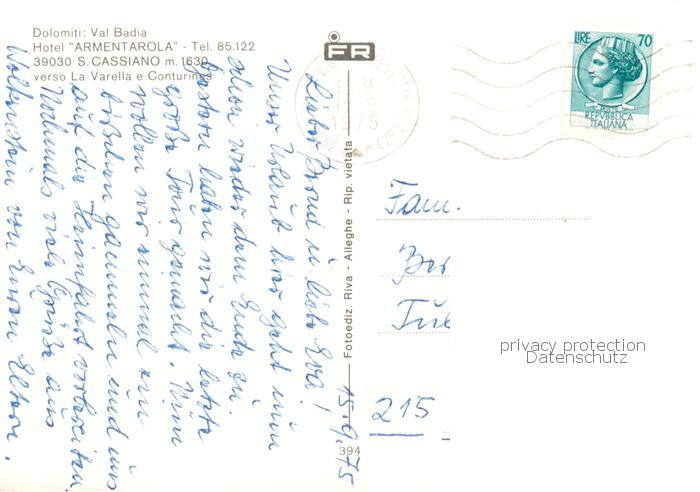 Dolomiti: Val Badia
Hotel "ARMENTAROLA" - Tel. 85.122
39030 S. CASSIANO m. 1630
verso La Varella e Conturines
FR
LIRE 70
POSTE
REPVBBLICA
ITALIANA
Fotoediz. Riva - Alleghe - Rip. vietata
394
15.9.75
Liebe u. liebe Eva!
Unser Urlaub hier geht nun
schon wieder dem Ende zu.
Gestern haben wir die letzte
große Tour gemacht. Nun
wollen wir nochmal ein
bißchen gammeln und uns
auf die Heimfahrt vorbereiten.
Nochmals viele Grüße aus
Wolkenstein von Euren Eltern.
Fam.
Ber
Tüb
215
privacy protection
Datenschutz